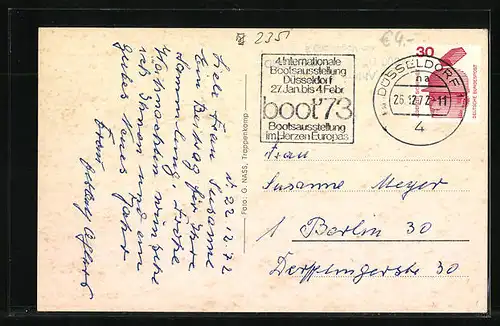 235
€4.-
4. Internationale
Bootsausstellung
Düsseldorf
27. Jan. bis 4. Febr.
boot'73
Bootsausstellung
im Herzen Europas
30
DEUTSCHE BUNDESPOST
DÜSSELDORF
na
26.12.72-11
4
d. 22.12.72
Liebe Frau Susanne
Ein Beitrag für Ihre
Sammlung. Frohe
Weihnachten wünsche
ich Ihnen und ein
gutes Neues Jahr
Foto: G. NASS, Trappenkamp
Frau
Susanne Meyer
1 Berlin 30
Derfflingerstraße 30